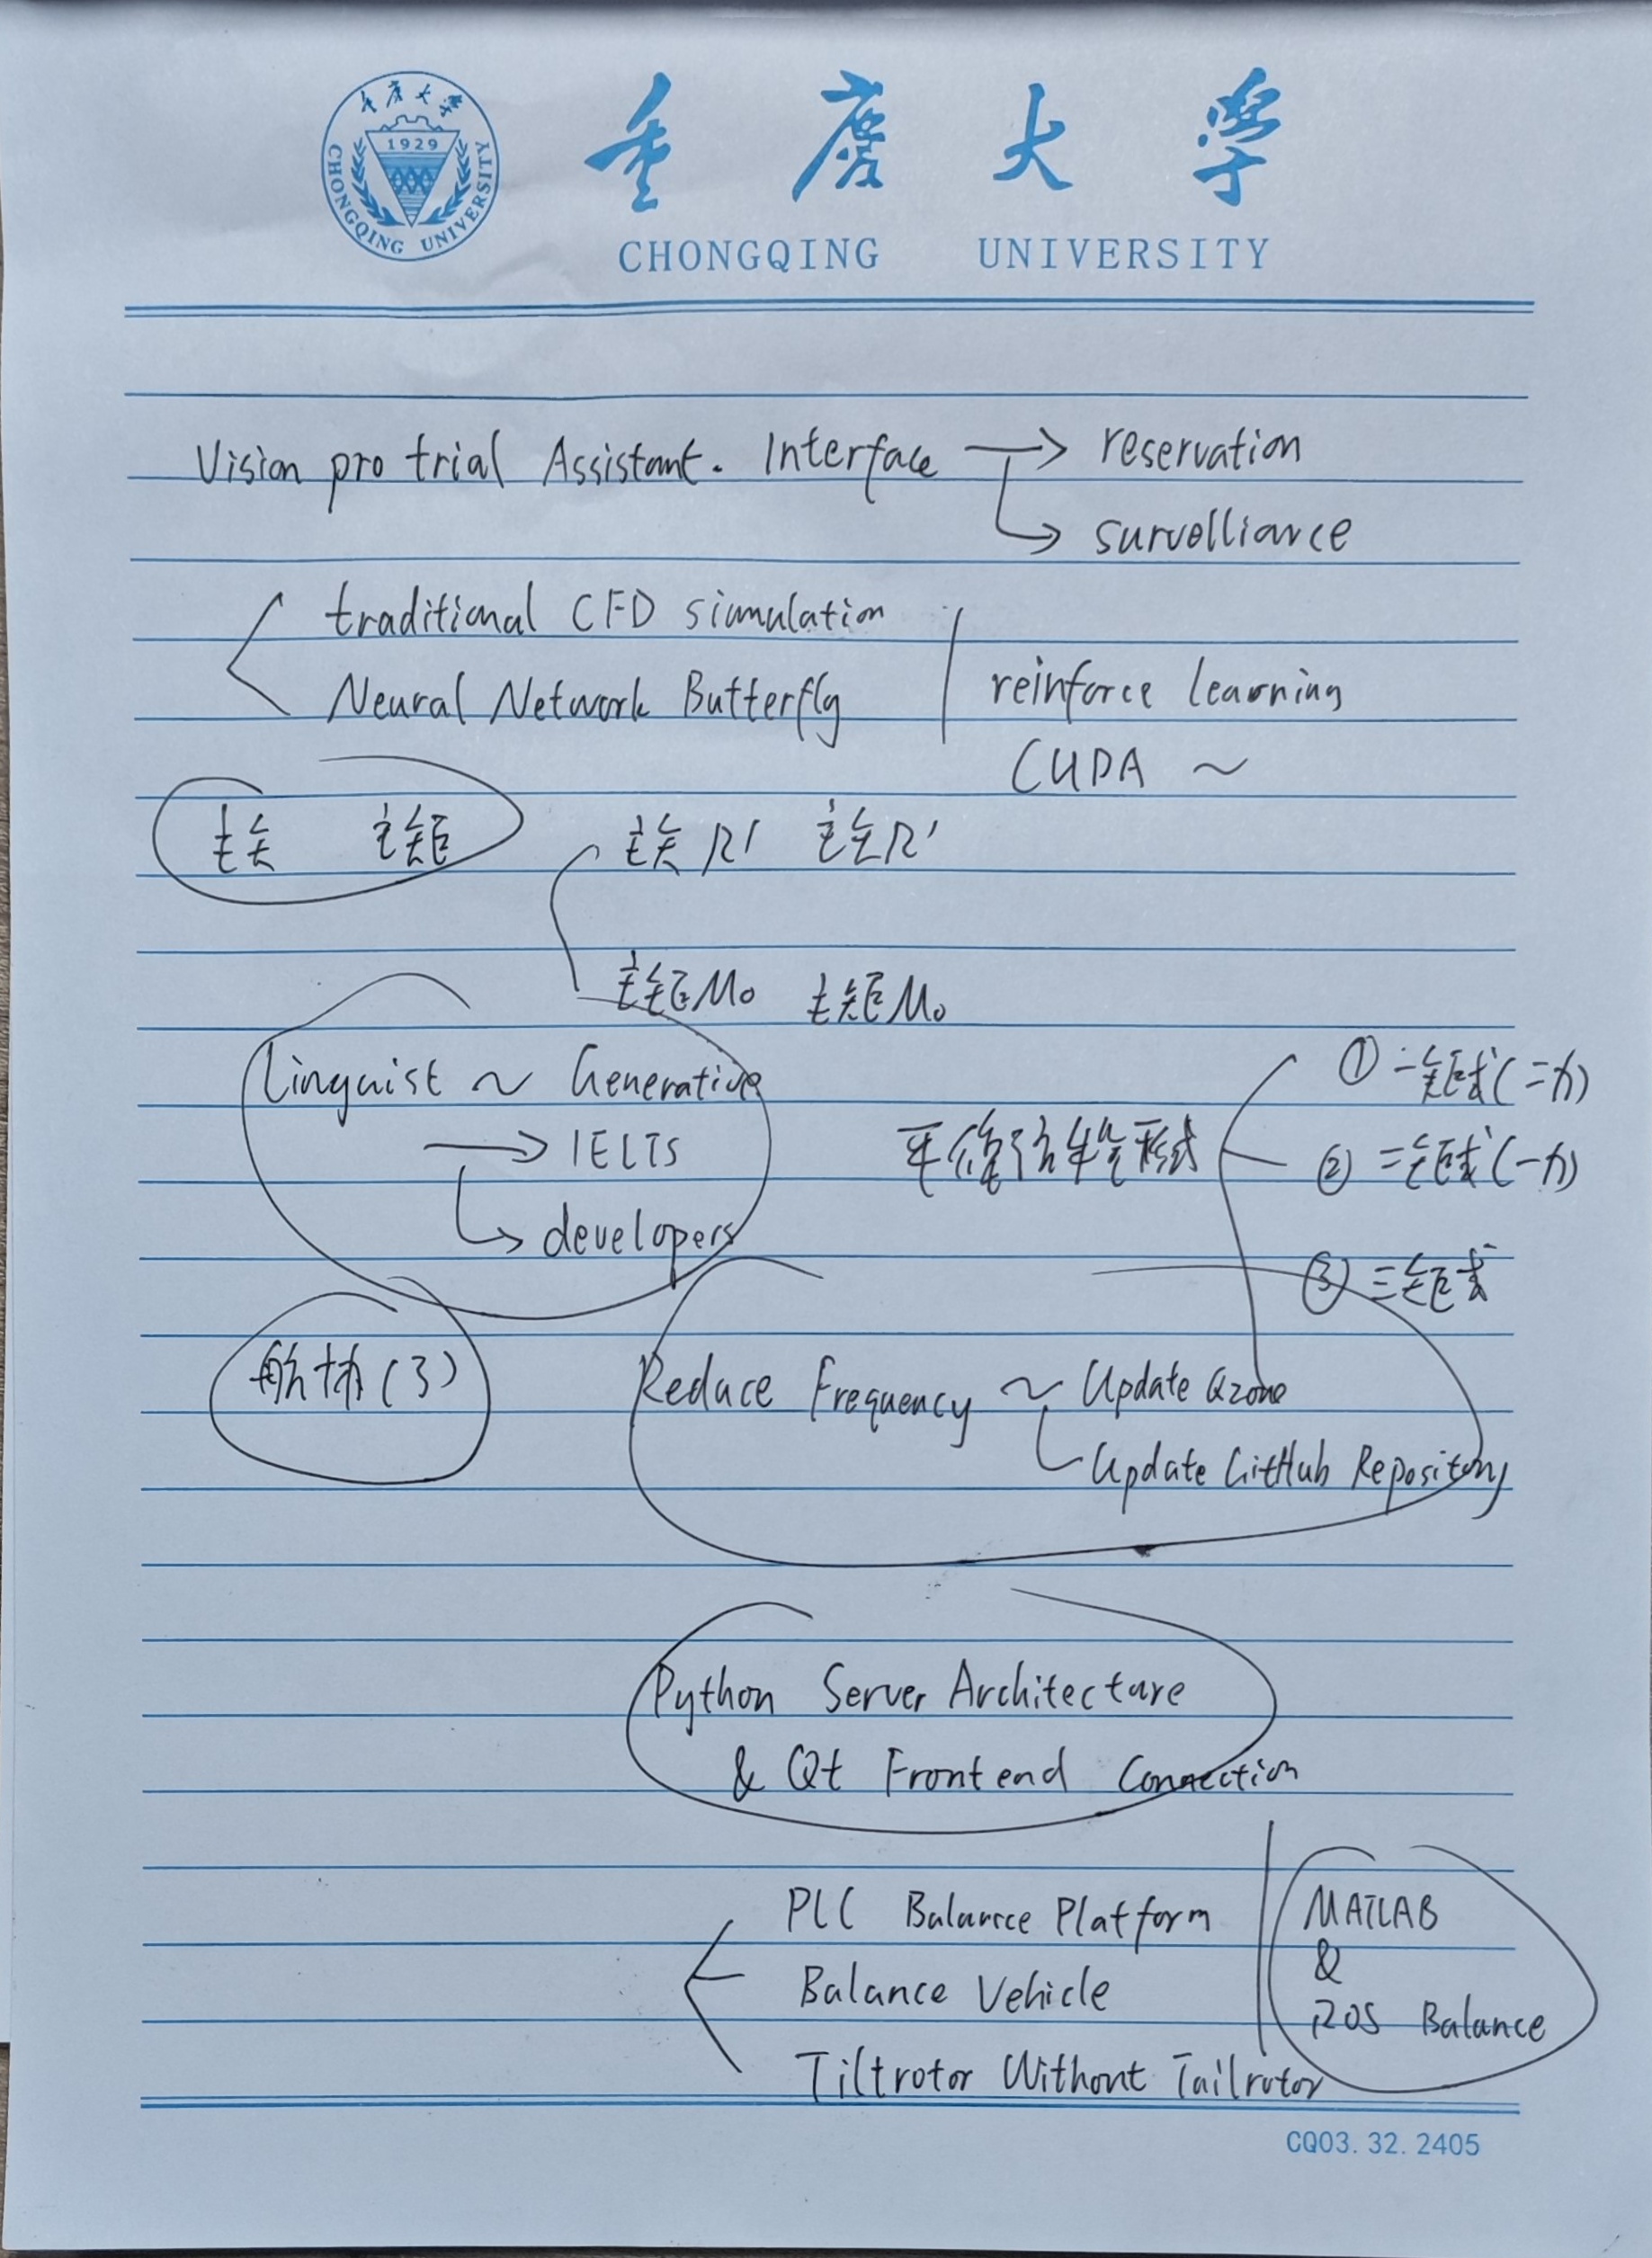 重庆大学
1929
CHONGQING UNIVERSITY
重庆大学
CHONGQING UNIVERSITY
Vision pro trial Assistant. Interface → reservation
survelliance
traditional CFD simulation
Neural Network Butterfly
reinforce learning
CUDA ~
主矢 主矩
主矢 R' 主矢 R'
主矩 Mo 主矩 Mo
Linguist ~ Generative
→ IELTS
developers
平衡方程形式
① 一矩式(二力)
② 二矩式(一力)
③ 三矩式
航协(3)
Reduce Frequency ~ Update Qzone
Update GitHub Repository
Python Server Architecture
& Qt Frontend Connection
PLC Balance Platform
Balance Vehicle
Tiltrotor Without Tailrotor
MATLAB
&
ROS Balance
CQ03.32.2405